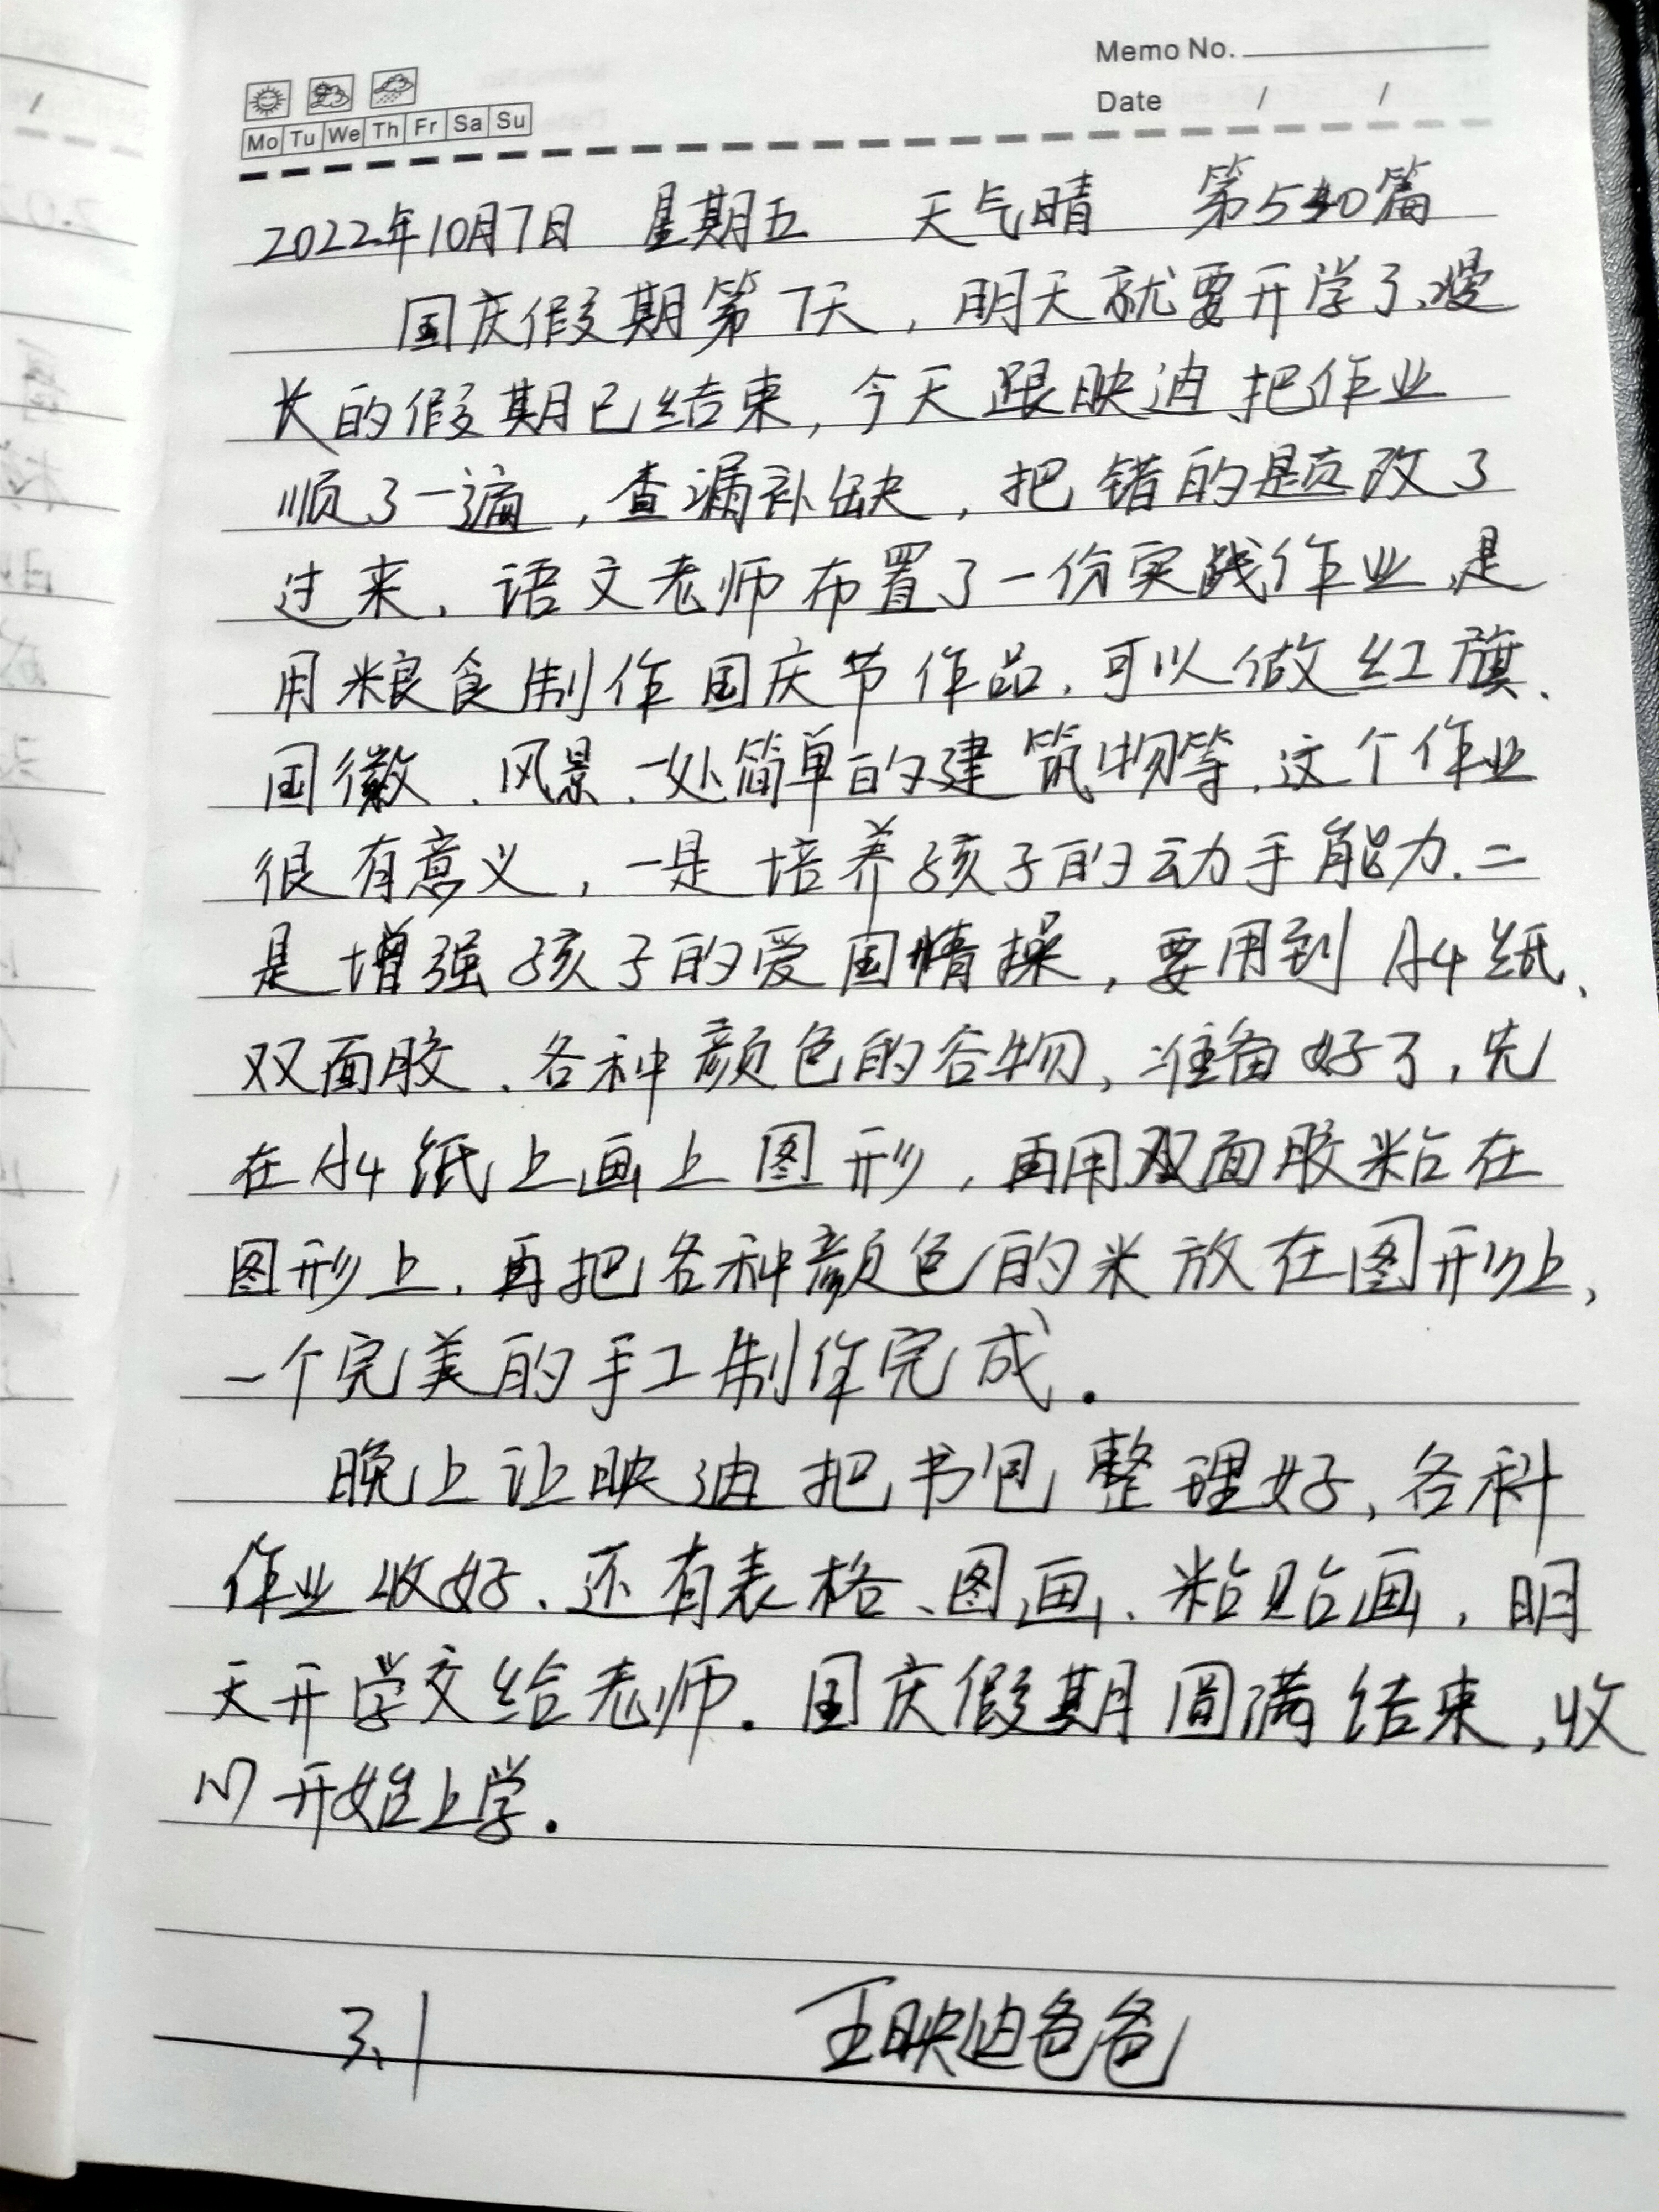 Memo No.
Date / /
Mo Tu We Th Fr Sa Su
2022年10月7日 星期五 天气晴 第540篇
国庆假期第7天，明天就要开学了、漫
长的假期已结束，今天跟映迪把作业
顺了一遍，查漏补缺，把错的题改了
过来、语文老师布置了一份实践作业、是
用粮食制作国庆节作品、可以做红旗、
国徽、风景、一处简单的建筑物等、这个作业
很有意义，一是培养孩子的动手能力、二
是增强孩子的爱国情操，要用到A4纸、
双面胶、各种颜色的谷物、准备好了，先
在A4纸上画上图形，再用双面胶粘在
图形上、再把各种颜色的米放在图形上、
一个完美的手工制作完成.
晚上让映迪把书包整理好、各科
作业收好、还有表格、图画、粘贴画，明
天开学交给老师.国庆假期圆满结束，收
心开始上学.
3.1 王映迪爸爸